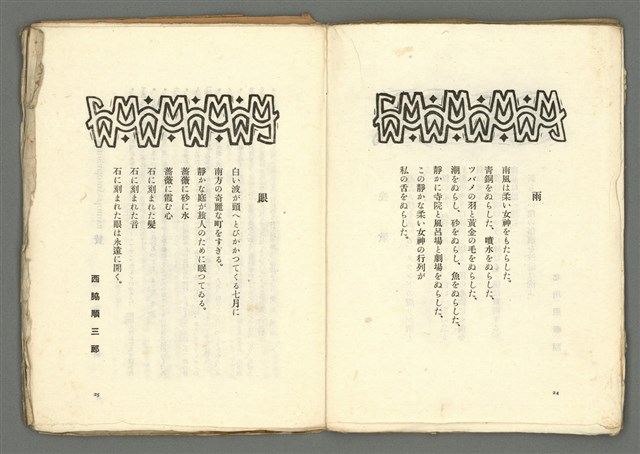 雨
南風は柔い女神をもたらした。
青銅をぬらした、噴水をぬらした、
ツバメの羽と黄金の毛をぬらした、
潮をぬらし、砂をぬらし、魚をぬらした、
静かに寺院と風呂場と劇場をぬらした、
この静かな柔い女神の行列が
私の舌をぬらした。
24
眼
白い波が頭へとびかかつてくる七月に
南方の奇麗な町をすぎる。
静かな庭が旅人のために眠つてゐる。
薔薇に砂に水
薔薇に霞む心
石に刻まれた髪
石に刻まれた音
石に刻まれた眼は永遠に開く。
西脇順三郎
25